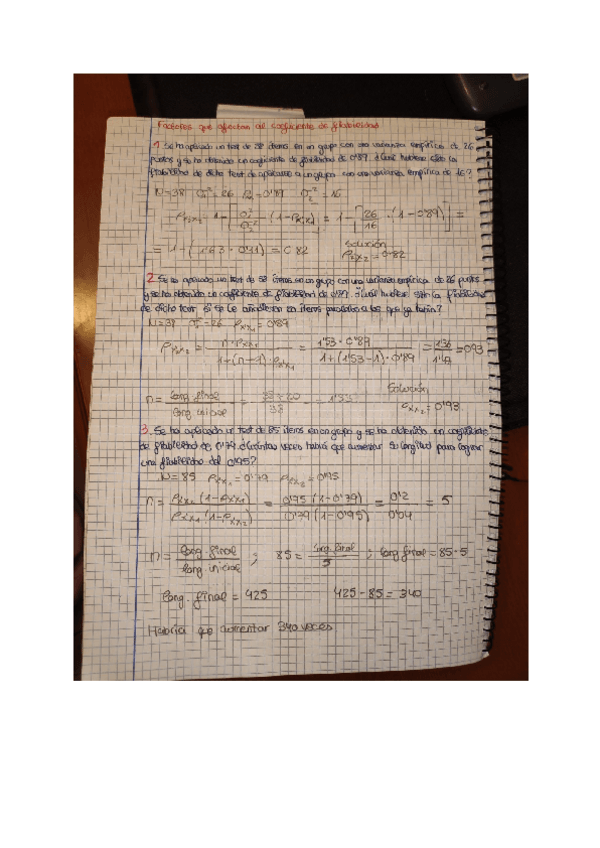 Factores que afectan al coeficiente de fiabilidad
1. Se ha aplicado un test de 38 ítems en un grupo con una varianza empírica de 26
puntos y se ha obtenido un coeficiente de fiabilidad de 0'89. ¿Cuál hubiera sido la
fiabilidad de dicho test de aplicarse a un grupo con una varianza empírica de 16?
N=38 σ₁²=26 =0'89 σ₂²=16
ρx₂x₂ = 1 - [σ₁²/σ₂² · (1-ρx₁x₁)] = 1 - [26/16 · (1-0'89)] =
= 1 - (1'63 · 0'11) = 0'82 solución ρx₂x₂ = 0'82
2. Se ha aplicado un test de 38 ítems en un grupo con una varianza empírica de 26 puntos
y se ha obtenido un coeficiente de fiabilidad de 0'89. ¿Cuál la fiabilidad
de dicho test si se le añadieran 20 ítems paralelos a los que ya tenía?
N=38 σ²=26 ρxx₁=0'89
ρxx₂ = n·ρxx₁ / 1+(n-1)·ρxx₁ = 1'53·0'89 / 1+(1'53-1)·0'89 = 1'36 / 1'47 = 0'93
n = long. final / long. inicial = 38+20 / 38 = 1'53 Solución ρxx₂=0'93
3. Se ha aplicado un test de 85 ítems en un grupo y se ha obtenido un coeficiente
de fiabilidad de 0'79 ¿Cuántas veces habrá que aumentar su longitud para lograr
una fiabilidad del 0'95?
N=85 ρxx₁=0'79 ρxx₂=0'95
n = ρxx₂(1-ρxx₁) / ρxx₁(1-ρxx₂) = 0'95(1-0'79) / 0'79(1-0'95) = 0'2 / 0'04 = 5
n = long. final / long. inicial ; 85 = long. final / 5 ; long final = 85·5
long. final = 425 425-85 = 340
Habría que aumentar 340 veces